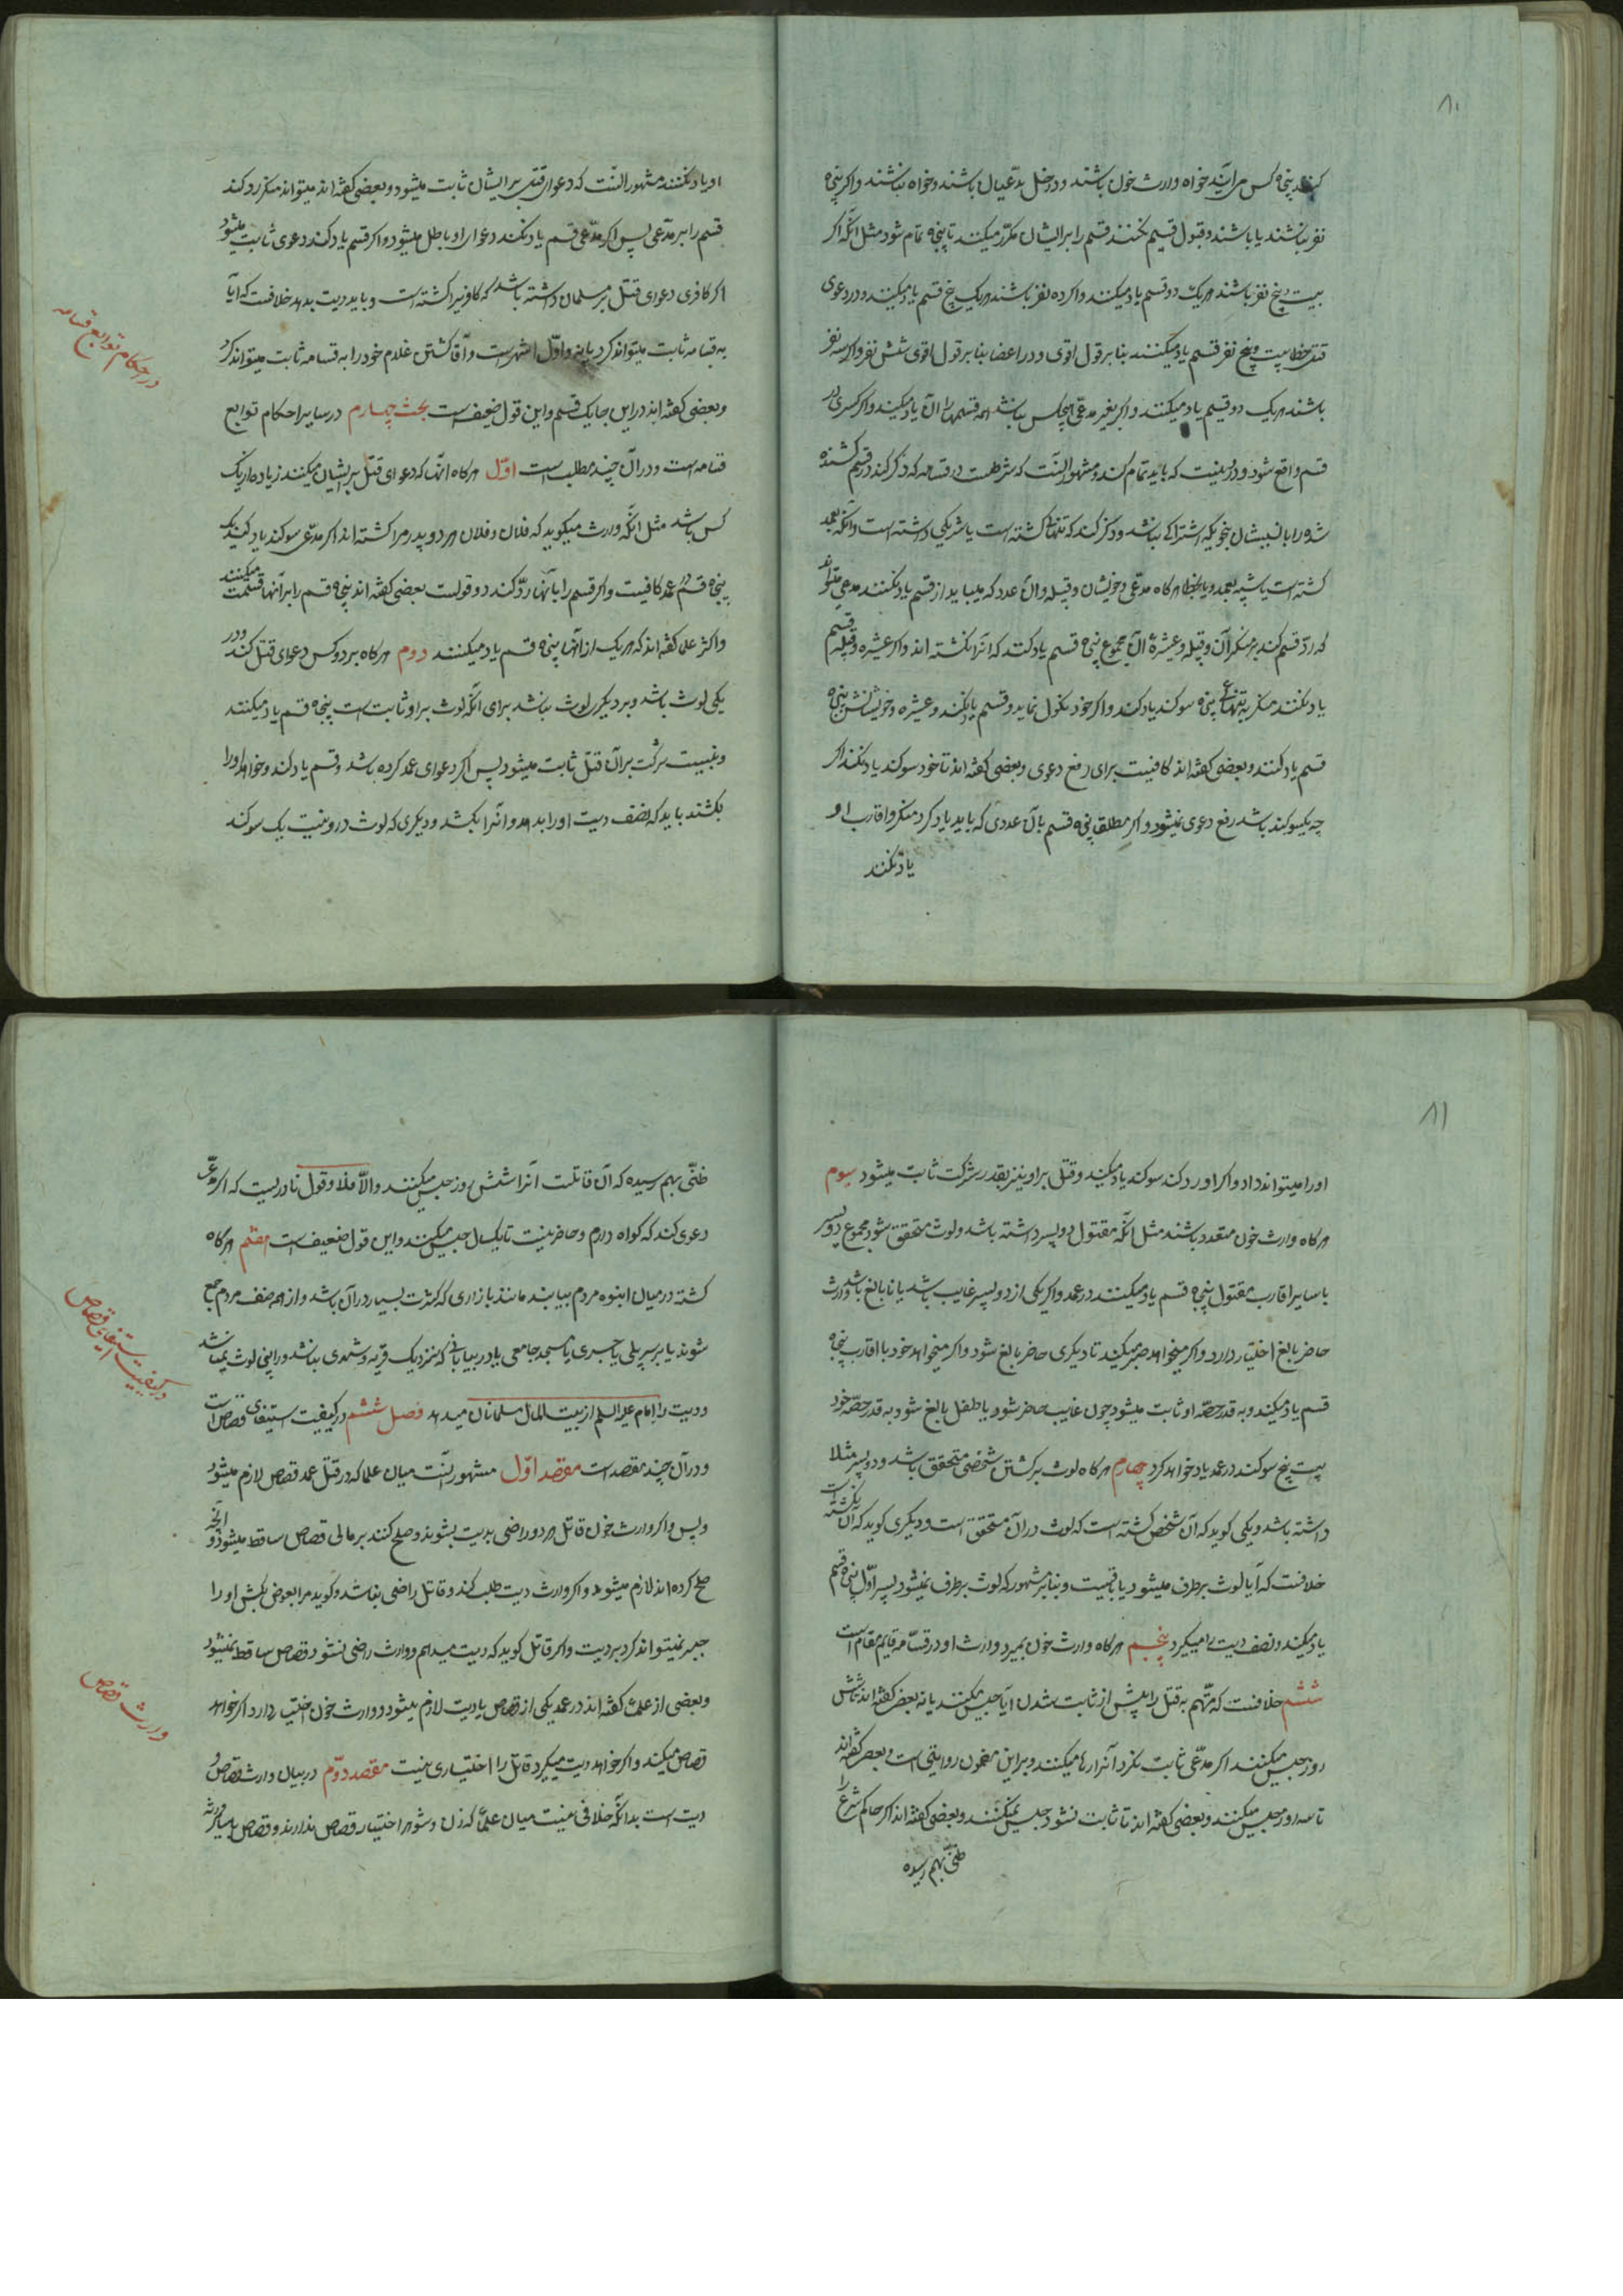 ۸۰
پنجاه کس می‌آیند خواه وارث خون باشند و داخل مدعیان باشند و خواه نباشند و اگر پنجاه
نفر نباشند یا باشند و قبول قسم نکنند قسم را بر ایشان مکرّر میکنند تا پنجاه تمام شود مثل آنکه اگر
بیست و پنج نفر باشند هر یک دو قسم یاد میکنند و اگر ده نفر باشند هر یک پنج قسم یاد میکنند و در دعوی
قتل خطا بیست و پنج نفر قسم یاد میکنند بنا بر قول اقوی و در اعضا بنا بر قول اقوی شش نفر و اگر سه نفر
باشند هر یک دو قسم یاد میکنند و اگر بغیر مدعی هیچکس نباشد همه قسمها را آن یاد میکند و اگر کسری در
قسم واقع شود و درست نیست که باید تمام کند و مشهور آنست که شرطست در قسامه که ذکر کند در قسم کشنده و
شده را با نسبشان بنحویکه اشتراک نباشد و ذکر کند که تنها کشته است یا شریکی داشته است و آنکه بعمد
کشته است یا شبه بعمد و یا بخطا هرگاه مدّعی و خویشان و قبیله و آن عدد که میباید از قسم یاد نکنند مدعی میتواند
که ردّ قسم کند بر منکر آن و قبیله و عشیرهٔ آن مجموع پنجاه قسم یاد کنند که آنرا نکشته اند و اگر عشیره و قبیله قسم
یاد نکنند منکر به تنهائی پنجاه سوگند یاد کند و اگر خود نکول نماید و قسم یاد نکند و عشیره و خویشانش پنجاه
قسم یاد کنند و بعضی گفته اند کافیست برای رفع دعوی و بعضی گفته اند تا خود سوگند یاد نکند اگر
چه یکسوگند باشد رفع دعوی نمیشود و اگر مطلق پنجاه قسم یا آن عددی که باید یاد کرد منکر و اقارب او
یاد نکنند
او یاد نکنند مشهور آنست که دعوای قتل بر ایشان ثابت میشود و بعضی گفته اند میتواند منکر رد کند
قسم را بر مدّعی پس اگر مدّعی قسم یاد نکند دعوای او باطل میشود و اگر قسم یاد کند دعوی ثابت میشود
اگر کافری دعوای قتل بر مسلمان داشته باشد که کافر را کشته است و باید دیت بدهد خلافست که آیا
به قسامه ثابت میتواند کرد یا نه و اوّل اشهر است و آقا کشتن غلام خود را به قسامه ثابت میتواند کرد
و بعضی گفته اند در این جا یک قسم و این قول ضعیف است بحث چهارم در سایر احکام توابع
قسامه است و در آن چند مطلب است اوّل هرگاه آنها که دعوای قتل بر ایشان میکنند زیاده از یک
کس باشد مثل آنکه وارث میگوید که فلان و فلان هر دو پدر مرا کشته اند اگر مدّعی سوگند یاد کند یک
پنجاه قسم در عمد کافیست و اگر قسم را بآنها ردّ کند دو قولست بعضی گفته اند پنجاه قسم را بر آنها قسمت میکنند
و اکثر علما گفته اند که هر یک از آنها پنجاه قسم یاد میکنند دوم هرگاه بر دو کس دعوای قتل کند و در
یکی لوث باشد و بر دیگری لوث نباشد برای آنکه لوث بر او ثابت است پنجاه قسم یاد میکنند
و بنسبت شرکت بر آن قتل ثابت میشود پس اگر دعوای عمد کرده باشد و قسم یاد کند و خواهد او را
بکشند باید که نصف دیت او را بدهد و آنرا بکشد و دیگری که لوث در او نیست یک سوگند
در احکام توابع قسامه
۸۱
او را میتواند داد و اگر او رد کند سوگند یاد میکنند و قتل بر او نیز بقدر شرکت ثابت میشود سیوم
هرگاه وارث خون متعدد باشند مثل آنکه مقتول دو پسر داشته باشد و لوث متحقق شود مجموع دو پسر
با سایر اقارب مقتول پنجاه قسم یاد میکنند در عمد و اگر یکی از دو پسر غایب باشد یا نابالغ باشد وارث
حاضر بالغ اختیار دارد و اگر میخواهد صبر میکند تا دیگری حاضر بالغ شود و اگر میخواهد خود با اقارب پنجاه
قسم یاد میکند و به قدر حصّه او ثابت میشود چون غایب حاضر شود یا طفل بالغ شود به قدر حصّه خود
بیست پنج سوگند در عمد یاد خواهد کرد چهارم هرگاه لوث بر کشتن شخصی متحقق باشد و دو پسر مثلا
داشته باشد و یکی گوید که آن شخص کشته است که لوث در آن متحقق است و دیگری گوید که آن نکشته است
خلافست که آیا لوث برطرف میشود یا باقیست و بنا بر مشهور که لوث برطرف نمیشود پسر اوّل پنجاه قسم
یاد میکند و نصف دیت را میگیرد پنجم هرگاه وارث خون بمیرد وارث او در قسامه قایم مقام است
ششم خلافست که متّهم به قتل را پیش از ثابت شدن آیا حبس میکنند یا نه بعضی گفته اند تا شش
روز حبس میکنند اگر مدّعی ثابت نکرد آنرا رها میکنند و بر این مضمون روایتی است و بعضی گفته اند
تا سه روز حبس میکنند و بعضی گفته اند تا ثابت نشود حبس نمیکنند و بعضی گفته اند اگر حاکم شرع را
ظنّی بهم رسیده
ظنّی بهم رسیده که آن قاتلست آنرا شش روز حبس میکنند و الّا فلا و قول نادریست که اگر مدّعی
دعوی کند که گواه دارم و حاضر نیست تا یکسال حبس میکنند و این قول ضعیف است هفتم هرگاه
کشته در میان انبوه مردم بیابند مانند بازاری که کثرت بسیار در آن باشد و از هر صنف مردم جمع
شوند یا بر سر پلی یا جسری یا مسجد جامعی یا در بیابانی که نزدیک قریه و شهری نباشد در اینها لوث نمیباشد
و دیت را امام علیه السلام از بیت المال مسلمانان میدهد فصل ششم در کیفیت استیفای قصاص است
و در آن چند مقصد است مقصد اوّل مشهور آنست میان علما که در قتل عمد قصاص لازم میشود
و پس و اگر وارث خون و قاتل هر دو راضی بدیت بشوند و صلح کنند بر مالی قصاص ساقط میشود و آنچه
صلح کرده اند لازم میشود و اگر وارث دیت طلب کند و قاتل راضی نباشد و گوید مرا بعوض بکش او را
جبر نمیتواند کرد بر دیت و اگر قاتل گوید که دیت میدهم و وارث راضی نشود قصاص ساقط نمیشود
و بعضی از علما گفته اند در عمد یکی از قصاص یا دیت لازم میشود و وارث خون اختیار دارد اگر خواهد
قصاص میکند و اگر خواهد دیت میگیرد قاتل را اختیاری نیست مقصد دوّم در بیان وارث قصاص و
دیت است بدانکه خلافی نیست میان علما که زن و شوهر اختیار قصاص ندارند و قصاص بسایر ورثه
در کیفیت استیفای قصاص
وارث قصاص